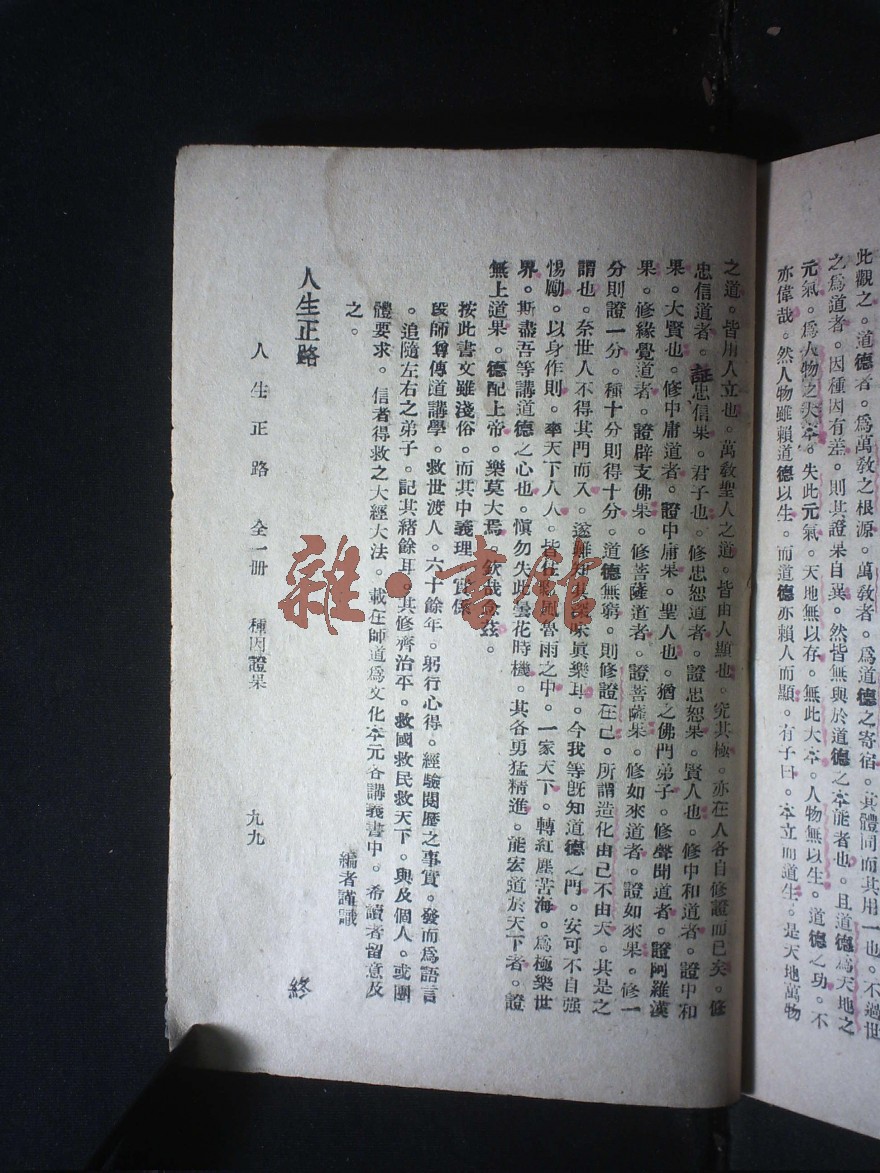 此觀之。道德者。爲萬敎之根源。萬敎者。爲道德之寄宿。其體同而其用一也。不過世
之爲道者。因種因有差。則其證果自異。然皆無與於道德之本能者也。且道德爲天地之
元氣。爲人物之大本。失此元氣。天地無以存。無此大本。人物無以生。道德之功。不
亦偉哉。然人物雖賴道德以生。而道德亦賴人而顯。有子曰。本立而道生。是天地萬物
之道。皆用人立也。萬敎聖人之道。皆由人顯也。究其極。亦在人各自修證而已矣。修
忠信道者。証忠信果。君子也。修忠恕道者。證忠恕果。賢人也。修中和道者。證中和
果。大賢也。修中庸道者。證中庸果。聖人也。猶之佛門弟子。修聲聞道者。證阿羅漢
果。修緣覺道者。證辟支佛果。修菩薩道者。證菩薩果。修如來道者。證如來果。修一
分則證一分。種十分則得十分。道德無窮。則修證在己。所謂造化由己不由天。其是之
謂也。奈世人不得其門而入。遂難知其深味眞樂耳。今我等旣知道德之門。安可不自强
惕勵。以身作則。率天下人人。皆在風魯雨之中。一家天下。轉紅塵苦海。爲極樂世
界。斯盡吾等講道德之心也。愼勿失此曇花時機。其各勇猛精進。能宏道於天下者。證
無上道果。德配上帝。樂莫大焉。欽哉念茲。
按此書文雖淺俗。而其中義理。實係
段師尊傳道講學。救世渡人。六十餘年。躬行心得。經驗閱歷之事實。發而爲語言
。追隨左右之弟子。記其緒餘耳。其修齊治平。救國救民救天下。與及個人。或團
體要求。信者得救之大經大法。載在師道爲文化本元各講義書中。希讀者留意及
之。
編者謹識
人生正路
終
人生正路 全一册 種因證果 九九
雜·書館